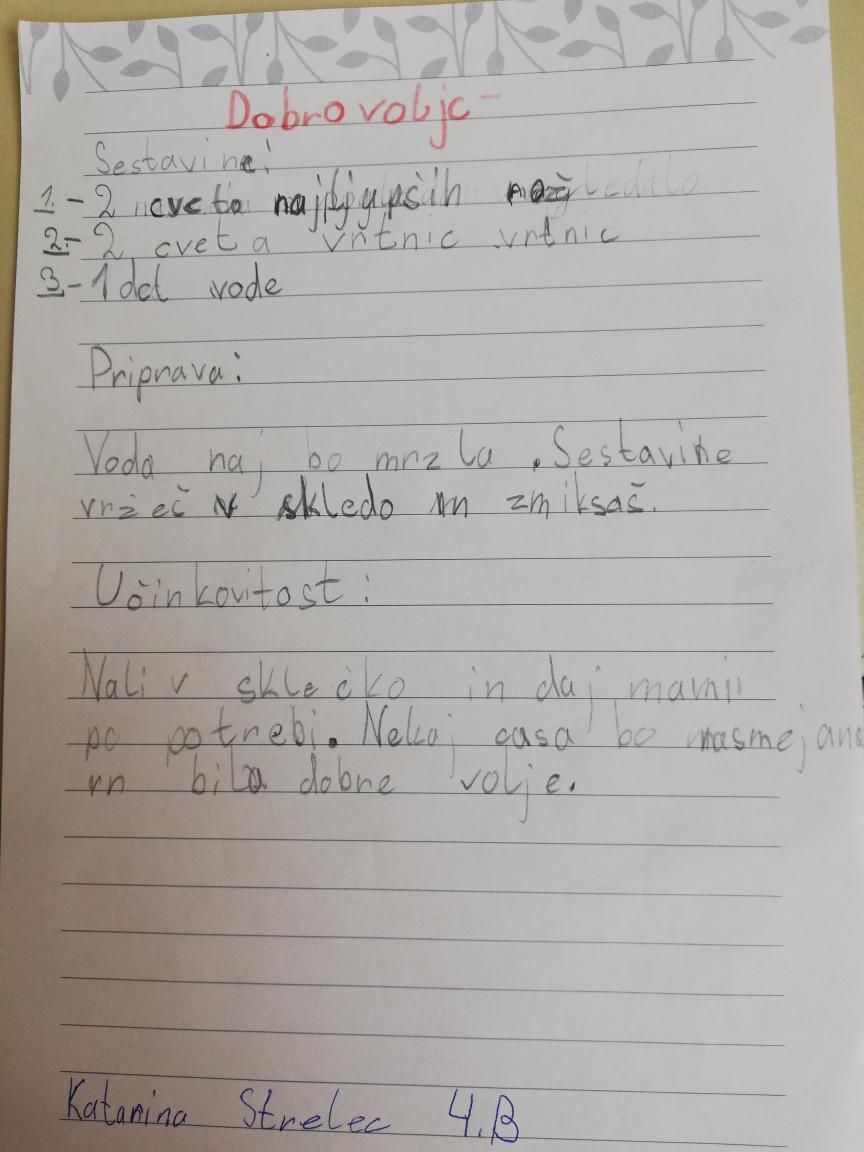 Dobrovoljc-
Sestavine:
1.-2 cveta najljupših rož
2.-2 cveta vrtnic vrtnic
3-1 dcl vode
Priprava:
Voda naj bo mrzla. Sestavine
vržeč v skledo in zmiksaš.
Učinkovitost:
Nali v sklečko in daj mamii
po potrebi. Nekaj casa bo nasmejana
in bila dobre volje.
Katarina Strelec 4.B